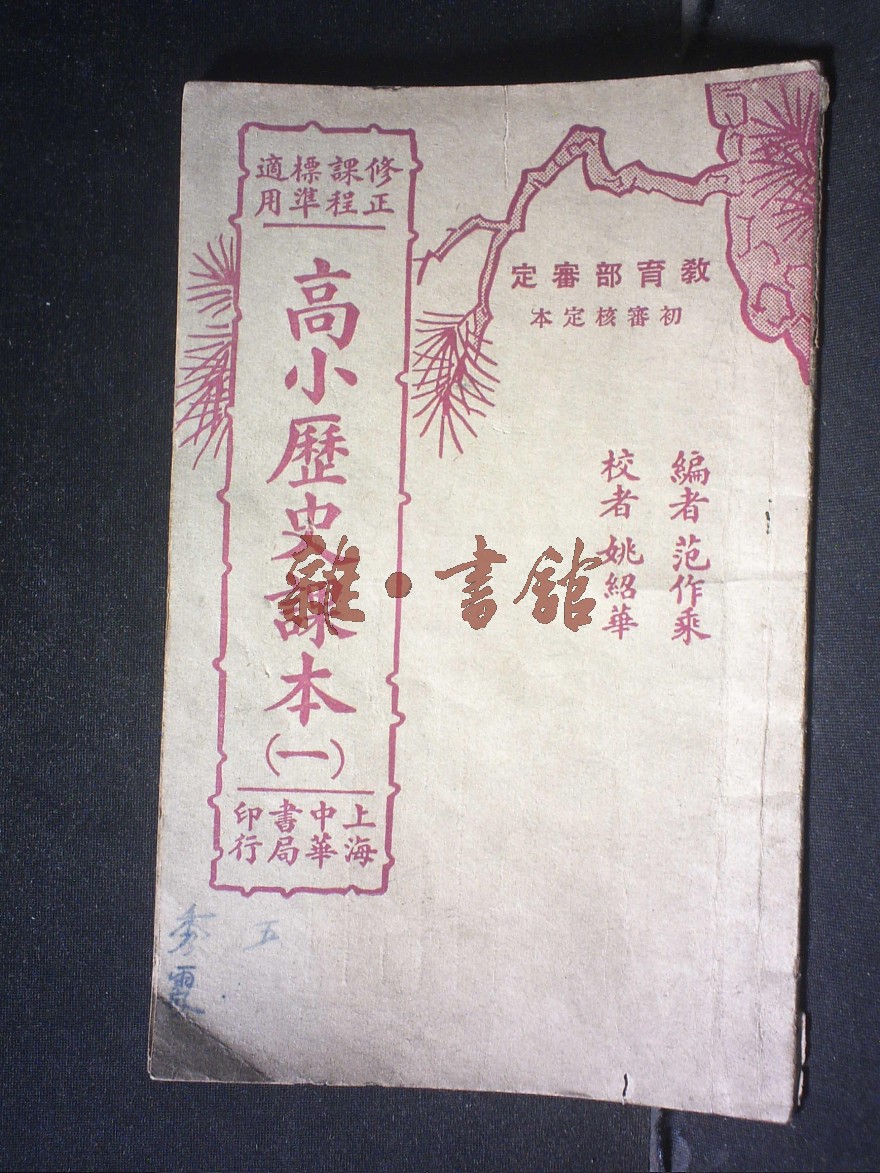 教育部審定
初審核定本
編者 范作乘
校者 姚紹華
修正課程標準適用
高小歷史課本(一)
上海中華書局印行
雜·書舘
五